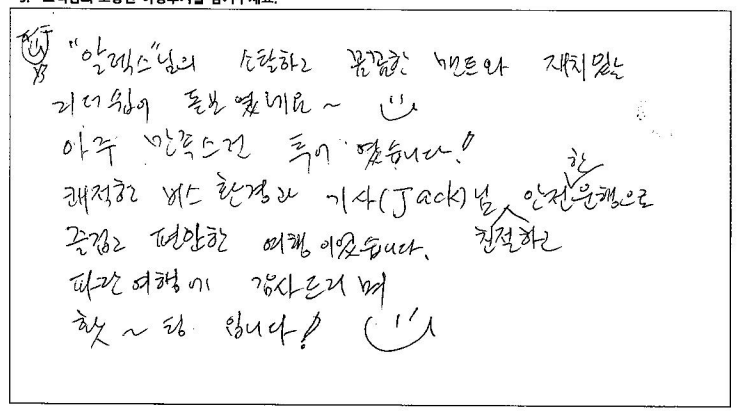 "알렉스"님의 소탈하고 꼼꼼한 멘트와 재치있는
리더쉽이 돋보였네요~
아주 만족스런 투어 였습니다!
쾌적한 버스 환경과 기사(Jack)님 친절하고 안전한 운행으로
즐겁고 편안한 여행이었습니다.
파란여행에 감사드리며
홧~팅 입니다!